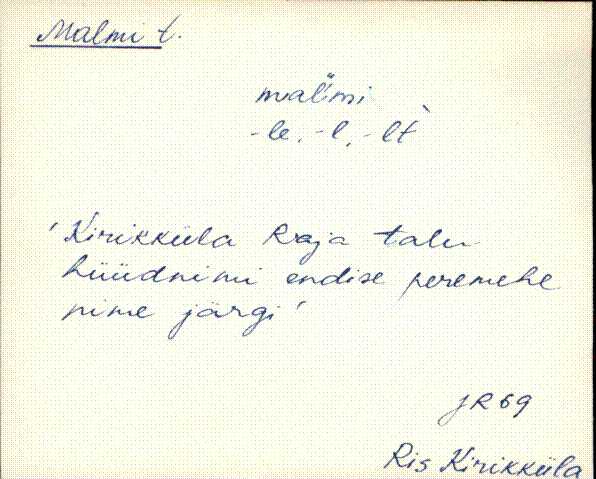 Malmi t.
mal̀mi
-le, -l, -lt
'Kirikküla Raja talu
hüüdnimi endise peremehe
nime järgi'
JR 69
Ris Kirikküla